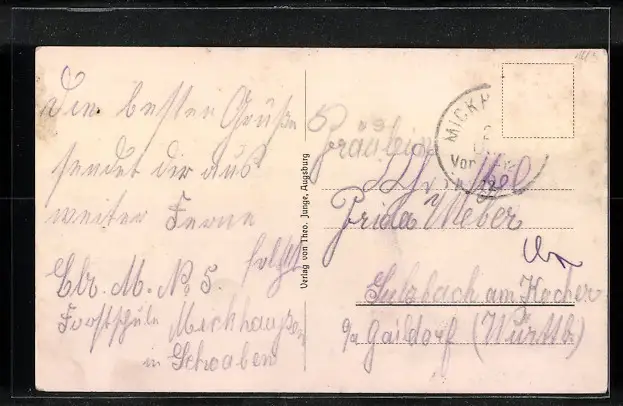 Die besten Grüße
sendet dir aus
weiter Ferne
Chr. M. No 5.
Forstschule Mickhausen
in Schwaben
Verlag von Theo. Junge, Augsburg
MICKH
Fräulein
Frida Weber
Sulzbach am Kocher
Gaildorf (Württb)